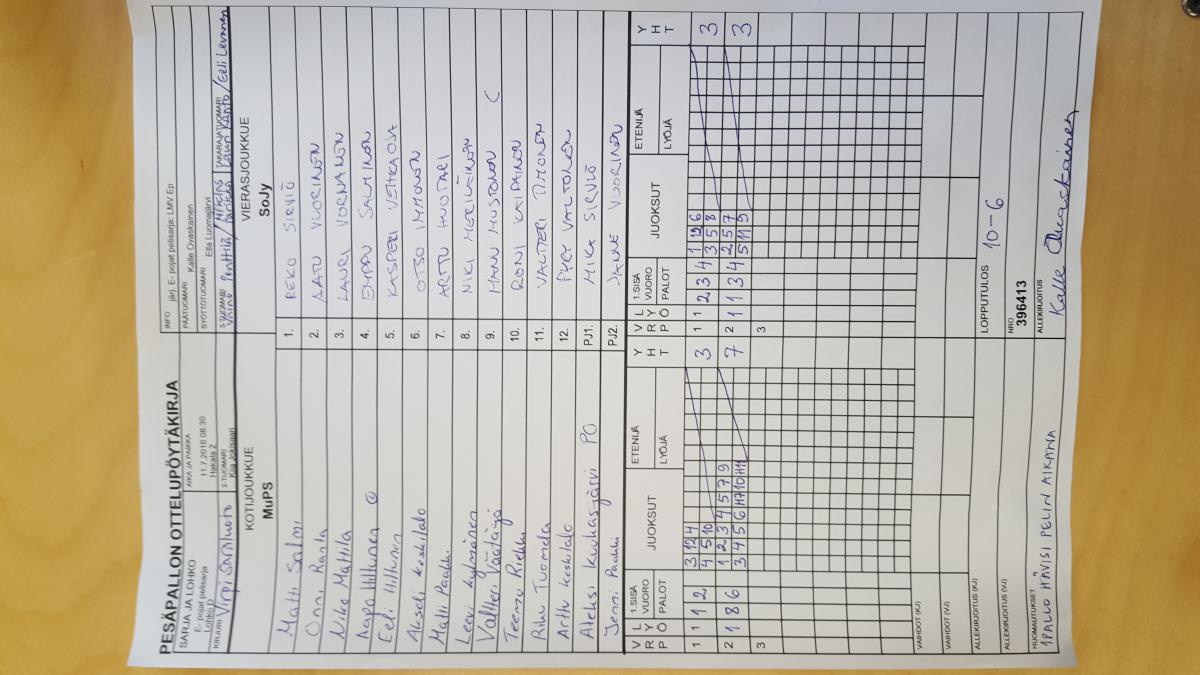 PESÄPALLON OTTELUPÖYTÄKIRJA
SARJA JA LOHKO
E- pojat pelisarja
Lohko D
AIKA JA PAIKKA
11.7.2016 08:30
Hakala 2
INFO järj. E- pojat pelisarja: LMV Ep
PÄÄTUOMARI Kalle Ovaskainen
SYÖTTÖTUOMARI Ella Luomajärvi
KIRJURI Virpi Saraluoto
2-TUOMARI
Kiia Jokisaari
3-TUOMARI
Väinö Penttilä / Niklas Parikka
TAKARAJATUOMARI
Lauri Kanto / Eeli Levanen
KOTIJOUKKUE
MuPS
VIERASJOUKKUE
SoJy
Matti Salmi 1. REKO SIRVIÖ
Onni Ranta 2. AATU VUORINEN
Niko Mattila 3. LAURI VORNANEN
Aapo Hiltunen C 4. EMPPU SALMINEN
Eeli Hiltunen 5. KASPERI VEIHKAOSA
Akseli Keskitalo 6. OTSO IMMONEN
Matti Paakki 7. ARTTU HUOTARI
Leevi Kylmänen 8. NIKI MERILÄINEN
Valtteri Väätäjä 9. MANU MUSTONEN C
Teemu Riekki 10. RONI KAIPAINEN
Riku Tuomela 11. VALTTERI TIMONEN
Arttu Keskitalo 12. PYRY VALTONEN
Aleksi Kuukasjärvi PO PJ1. MIKA SIRVIÖ
Jenni Paakki PJ2. JANNE VUORINEN
V R P
L Y Ö
1.SISÄ VUORO
PALOT
JUOKSUT
ETENIJÄ
LYÖJÄ
Y H T
V R P
L Y Ö
1.SISÄ VUORO
PALOT
JUOKSUT
ETENIJÄ
LYÖJÄ
Y H T
1 1 1 2 3 12 4 3 1 1 2 3 4 1 12 6 3
4 5 10 3 5 8
2 1 8 6 1 2 3 4 5 7 9 7 2 1 1 3 4 2 5 7 3
3 4 5 6 H7 10 H11 5 11 9
3 3
VAIHDOT (KJ)
VAIHDOT (VJ)
LOPPUTULOS 10-6
ALLEKIRJOITUS (KJ)
ALLEKIRJOITUS (VJ)
NRO
396413
HUOMAUTUKSET
1 PALLO HÄVISI PELIN AIKANA
ALLEKIRJOITUS
Kalle Ovaskainen